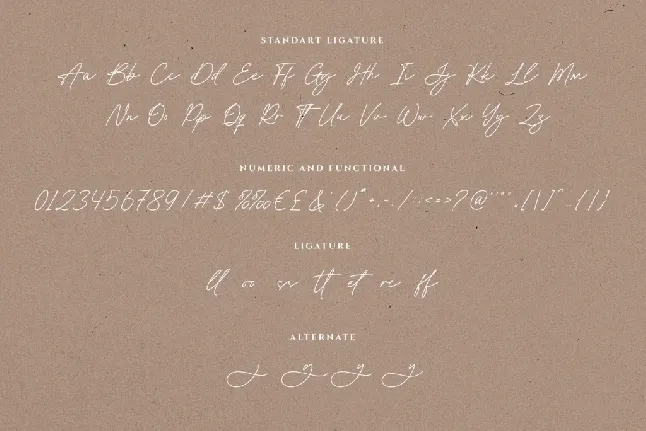 STANDART LIGATURE
Aa Bb Cc Dd Ee Ff Gg Hh Ii Jj Kk Ll Mm
Nn Oo Pp Qq Rr Tt Uu Vv Ww Xx Yy Zz
NUMERIC AND FUNCTIONAL
0123456789!#$%‰€£&
LIGATURE
ll oo tt et re ff
ALTERNATE
j g y y